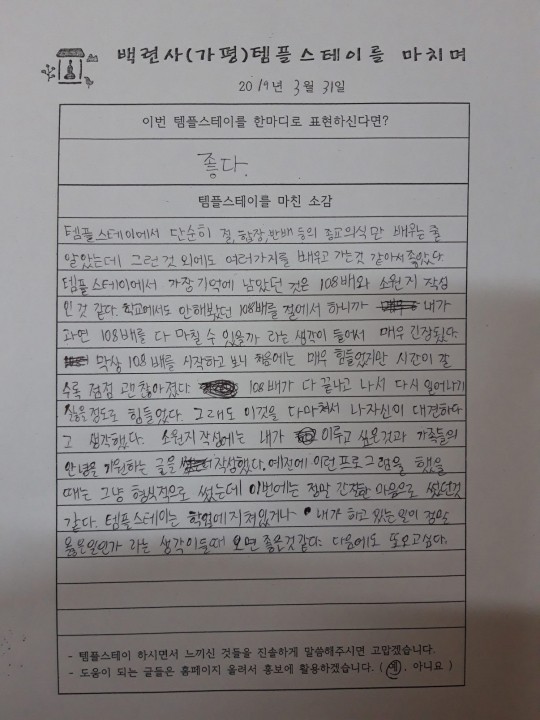 백련사(가평)템플스테이를 마치며
2019년 3월 31일
이번 템플스테이를 한마디로 표현하신다면?
좋다.
템플스테이를 마친 소감
템플스테이에서 단순히 절, 합장, 반배 등의 종교의식만 배우는 줄
알았는데 그런 것 외에도 여러가지를 배우고 가는것 같아서 좋았다
템플스테이에서 가장 기억에 남았던 것은 108배와 소원지 작성
인 것 같다. 학교에서도 안해봤던 108배를 절에서 하니까 내가
과연 108배를 다 마칠 수 있을까 라는 생각이 들어서 매우 긴장됬다.
막상 108배를 시작하고 보니 처음에는 매우 힘들었지만 시간이 갈
수록 점점 괜찮아졌다. 108배가 다 끝나고 나서 다시 일어나기
싫을정도로 힘들었다. 그래도 이것을 다마쳐서 나자신이 대견하다
고 생각했다. 소원지작성에는 내가 이루고 싶은것과 가족들의
안녕을 기원하는 글을 작성했다. 예전에 이런프로그램을 했을
때는 그냥 형식적으로 썼는데 이번에는 정말 간절한 마음으로 썼던것
같다. 템플스테이는 학업에 지쳐있거나 내가 하고 있는일이 정말
옳은일인가 라는 생각이들때 오면 좋은것같다. 다음에도 또오고싶다.
- 템플스테이 하시면서 느끼신 것들을 진솔하게 말씀해주시면 고맙겠습니다.
- 도움이 되는 글들은 홈페이지 올려서 홍보에 활용하겠습니다. ( 예, 아니요 )